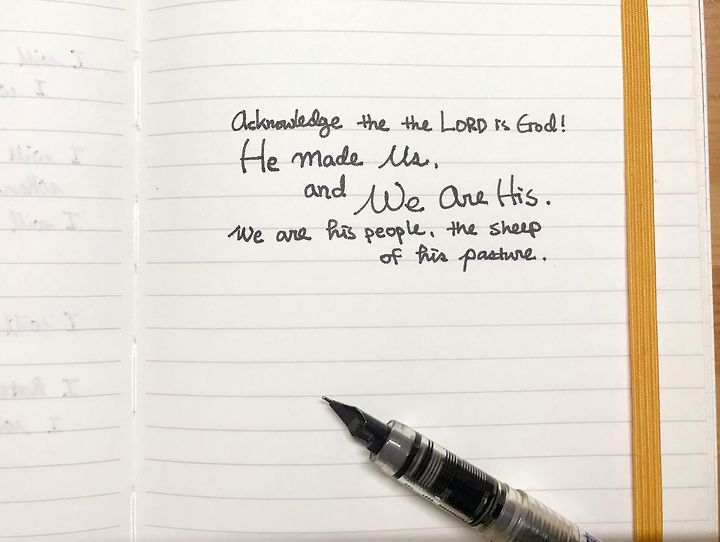 Acknowledge the the LORD is God!
He made Us,
and We Are His.
We are his people, the sheep
of his pasture.